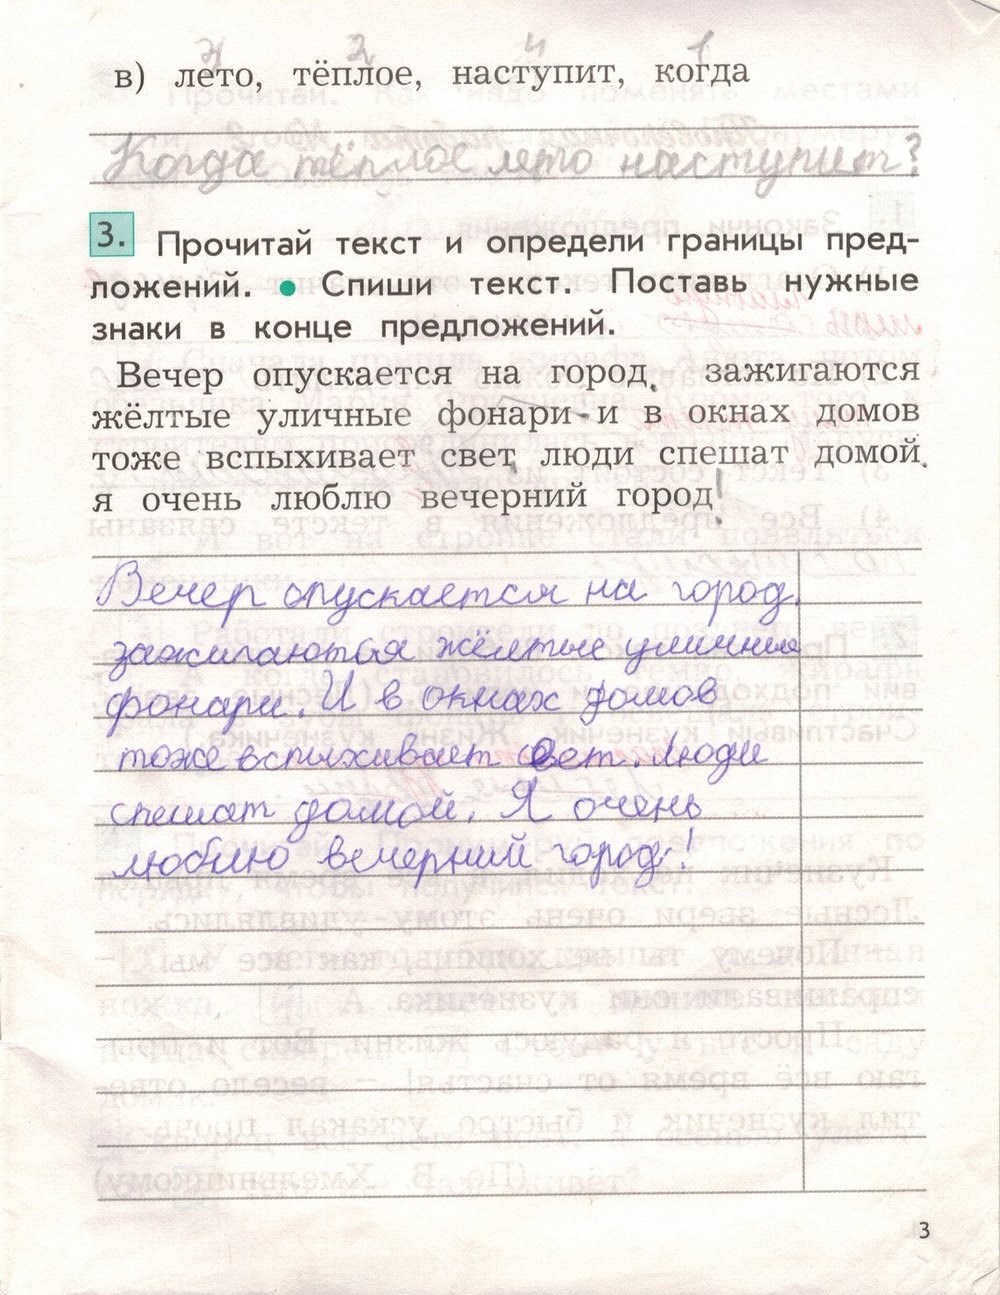 3 2 4 1
в) лето, тёплое, наступит, когда
Когда тёплое лето наступит?
3. Прочитай текст и определи границы пред-
ложений. ● Спиши текст. Поставь нужные
знаки в конце предложений.
Вечер опускается на город. зажигаются
жёлтые уличные фонари. и в окнах домов
тоже вспыхивает свет. люди спешат домой.
я очень люблю вечерний город!
Вечер опускается на город.
зажигаются жёлтые уличные
фонари. И в окнах домов
тоже вспыхивает свет. Люди
спешат домой. Я очень
люблю вечерний город!
3